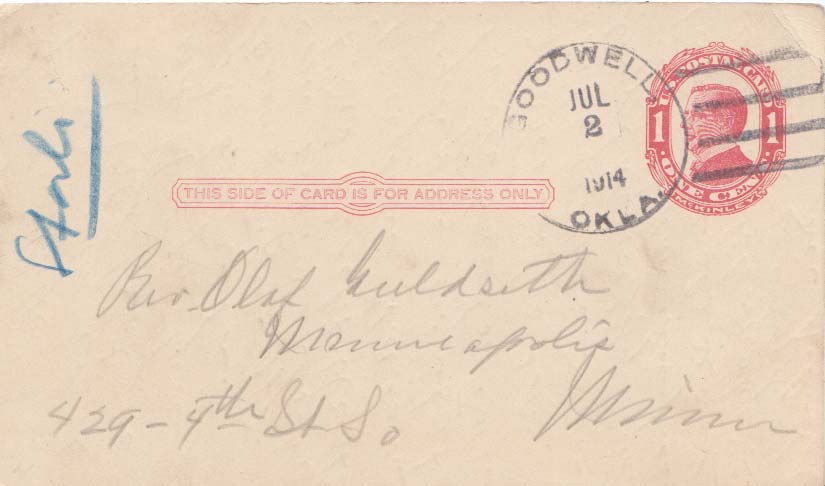 GOODWELL
JUL
2
1914
OKLA.
U.S. POSTAL CARD
1 1
ONE CENT
McKINLEY
THIS SIDE OF CARD IS FOR ADDRESS ONLY
Rev. Olaf Guldseth
Minneapolis
429 - 4th St So Minn